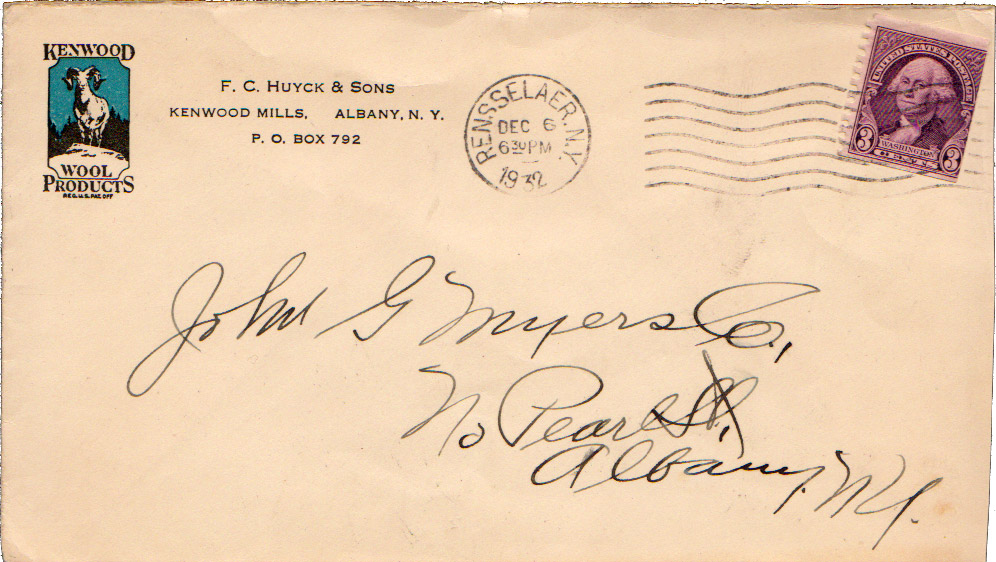 KENWOOD
WOOL
PRODUCTS
REG. U.S. PAT. OFF
F. C. HUYCK & SONS
KENWOOD MILLS, ALBANY, N. Y.
P. O. BOX 792
RENSSELAER, N.Y.
DEC 6
6 30 PM
1932
UNITED STATES POSTAGE
WASHINGTON
3 CENTS 3
John G Myers Co.,
No Pearl St,
Albany, N.Y.